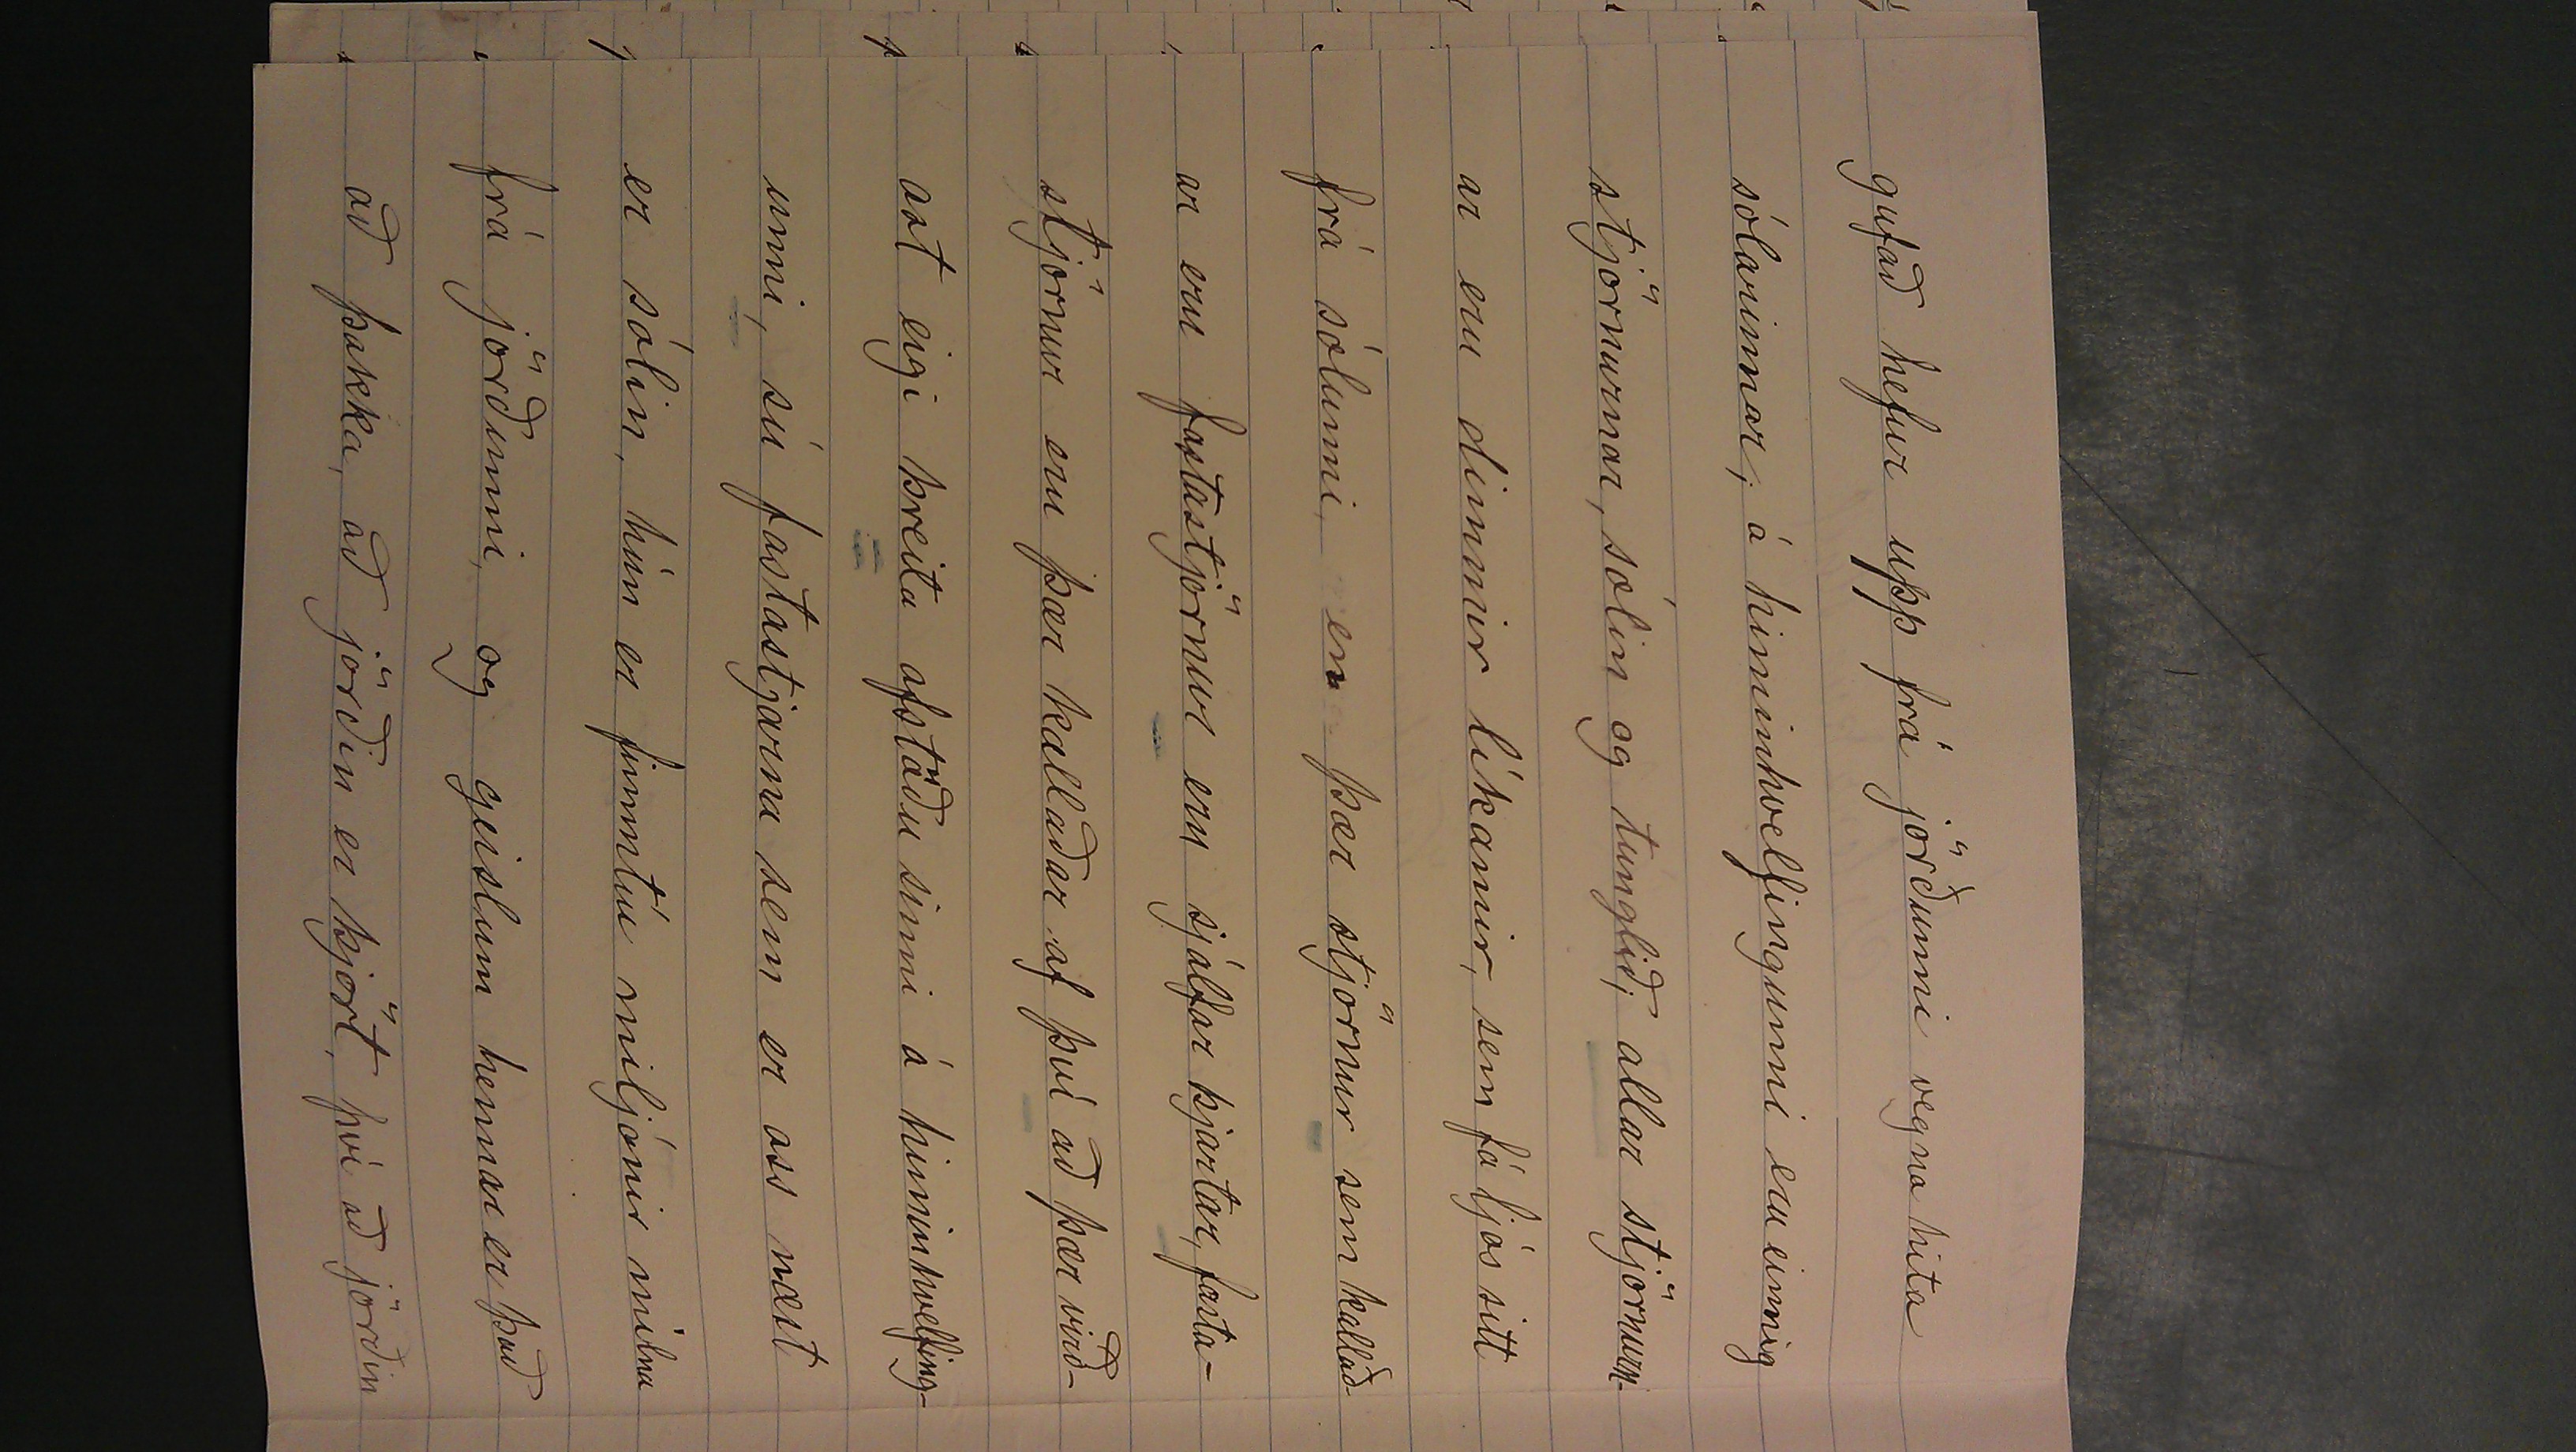 gufað hefur upp frá jörðunni vegna hita
sólarinnar; á himinhvelfingunni eru einnig
stjörnurnar, sólin og tunglið; allar stjörnurn-
ar eru dimmir líkamir, sem fá ljós sitt
frá sólunni, en þær stjörnur sem kallað-
ar eru fastastjörnur eru sjálfar bjartar, fasta-
stjörnur eru þær kallaðar af því að þær virð-
ast eigi breita afstöðu sinni á himinhvelfing-
unni, sú fastastjarna sem er oss næst
er sólin, hún er fimmtíu miljónir mílna
frá jörðunni, og geislum hennar er það
að þakka, að jörðin er björt, því að jörðin